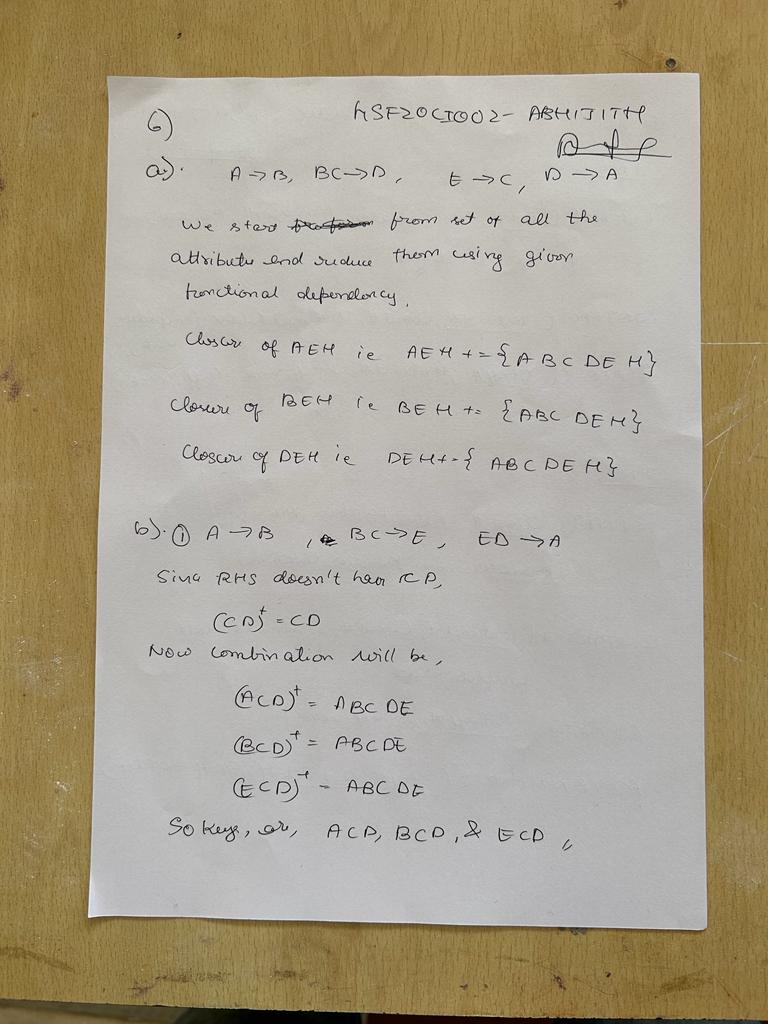 6)
HSF20CI002- ABHIJITH
a). A → B, BC → D, E → C, D → A
We start from set of all the
attributes and reduce them using given
functional dependency.
Closure of AEH ie AEH += {ABCDEH}
Closure of BEH ie BEH += {ABCDEH}
Closure of DEH ie DEH+={ABCDEH}
b). ① A → B , BC → E, ED → A
Since RHS doesn't have CD,
(CD)⁺ = CD
Now combination will be,
(ACD)⁺ = ABCDE
(BCD)⁺ = ABCDE
(ECD)⁺ = ABCDE
So keys, are, ACD, BCD, & ECD